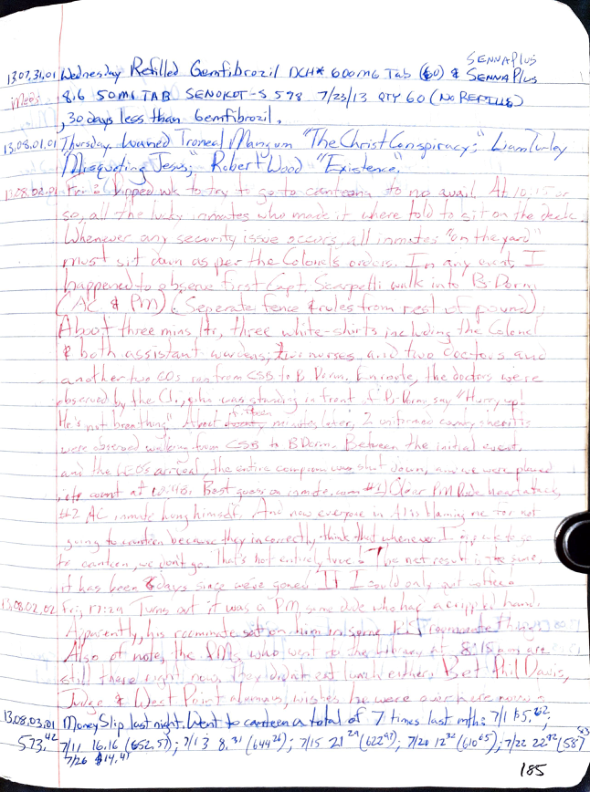 SENNAPlus
13.07.31.01 Wednesday Refilled Gemfibrozil DCH* 600MG Tab (60) & SENNA Plus
Meds 8.6 50MG TAB SENOKOT-S 598 7/23/13 QTY 60 (No REFILLS)
, 30 days less than Gemfibrozil.
13.08.01.01 Thursday Loaned Troneal Mangum "The Christ Conspiracy;" Liam Turley
Misquoting Jesus;" Robert Wood "Existence;"
13.08.02.01 Fri to try to go to canteen to no avail. At 10:15 or
so, all the lucky inmates who made it where told to sit on the deck.
Whenever any security issue occurs, all inmates "on the yard"
must sit down as per the Colonel's orders. In any event, I
happened to observe first Capt. Scarpelli walk into B-Dorm
(AC & PM) (Seperate fence & rules from rest of pound)
About three mins ltr, three white-shirts including the Colonel
& both assistant wardens; nurses and two doctors and
another two COs ran from CSB to B Dorm. Enroute, the doctors were
observed by the who was standing in front of B-Dorm, say "Hurry up!
He's not breathing." About minutes later, 2 uniformed county
were observed walking from CSB to B Dorm. Between the initial event,
and the LEO's arrival, the entire compound was shut down, and we were placed
into count at 10:48. Best guess #1) Older PM Dude heart attack,
#2 AC inmate hung himself. And now everyone in is blaming me for not
going to canteen because they incorrectly think that whenever I
to canteen, we don't go. That's not entirely true! The net result is the same,
it has been 6 days since we've gone. If I could only get
13.08.02.02 Fri, 17:29 Turns out it was a PM some dude who had a crippled hand.
Apparently, his roommate sat on him
Also of note, the PMs who went to the library at 8:15 am are
still there right now. They didn't eat lunch either. Bet Phil Davis,
Judge & West Point alumnus, wishes he were over here now.
13.08.03.01 Money Slip last night. Went to canteen a total of 7 times last mth: 7/1 $5.62;
573.42 7/11 16.16 (652.57); 7/13 8.31 (644.26); 7/15 21.29 (622.97); 7/20 12.32 (610.65); 7/22 22.82 (587.83)
7/26 $14.41
185